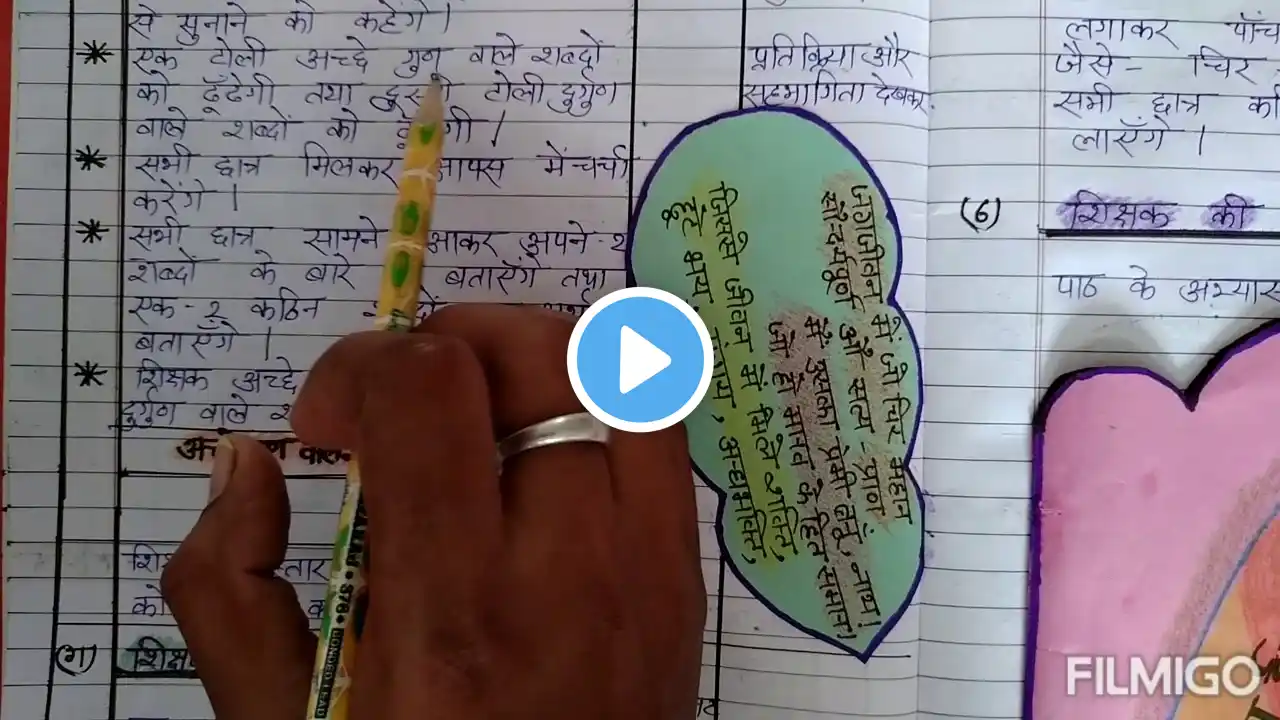 से सुनाने को कहेंगे।
* एक टोली अच्छे गुण वाले शब्दों
को ढूँढेगी तथा टोली दुर्गुण
वाले शब्दों को
* सभी छात्र मिलकर आपस में चर्चा
करेंगे।
* सभी छात्र सामने आकर अपने-२
शब्दों के बारे बताएँगे तथा
एक-२ कठिन
बताएँगे।
* शिक्षक अच्छे
दुर्गुण वाले
को
(ग)
प्रतिक्रिया और
सहभागिता देखकर
जगजीवन में जो चिर महान
सौन्दर्यपूर्ण औ सत्य-प्राण
मैं उसका प्रेमी बनूं, नाथ!
जो हो मानव के हित समान।
जिससे जीवन में मिले शक्ति,
छूटे भय, संशय, अन्धभक्ति,
लगाकर
जैसे- चिर
सभी छात्र
लाएँगे।
(6) शिक्षक की
पाठ के अभ्यास
FILMIGO